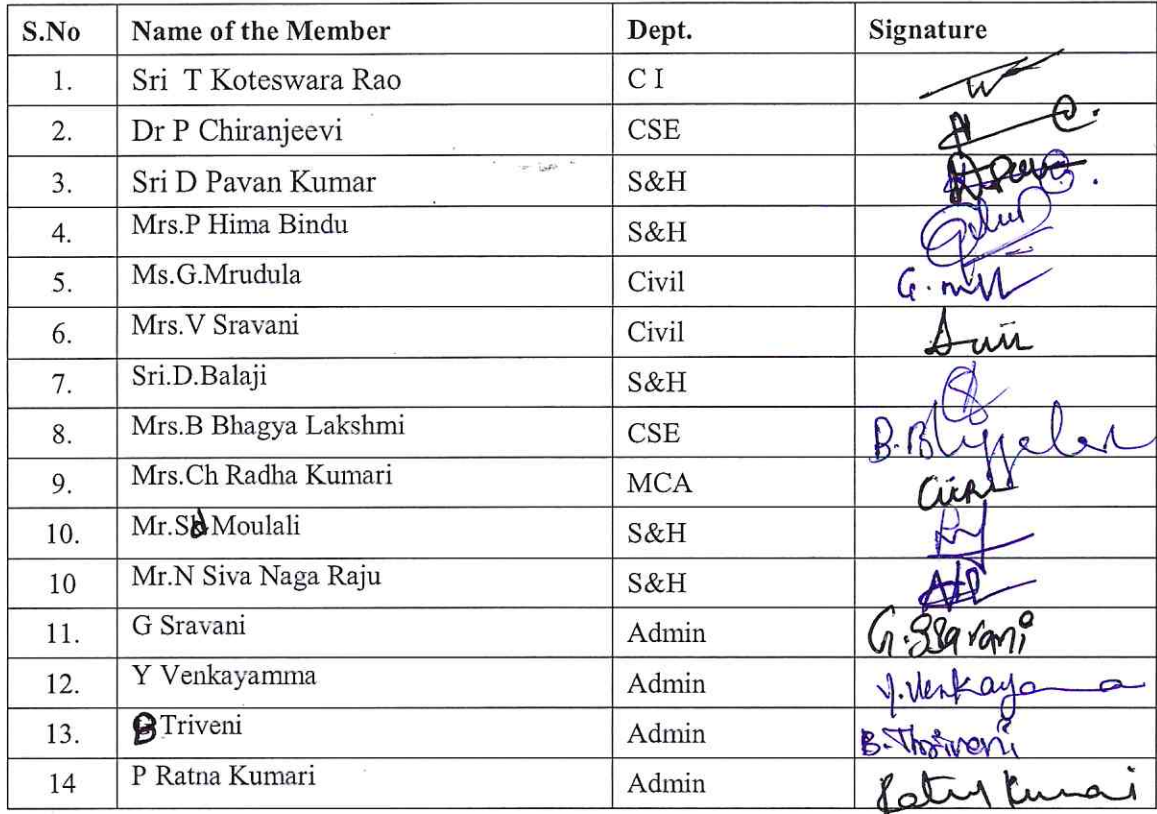 S.No Name of the Member Dept. Signature
1. Sri T Koteswara Rao C I
2. Dr P Chiranjeevi CSE
3. Sri D Pavan Kumar S&H
4. Mrs.P Hima Bindu S&H
5. Ms.G.Mrudula Civil
6. Mrs.V Sravani Civil
7. Sri.D.Balaji S&H
8. Mrs.B Bhagya Lakshmi CSE
9. Mrs.Ch Radha Kumari MCA
10. Mr.Sd Moulali S&H
10 Mr.N Siva Naga Raju S&H
11. G Sravani Admin G.SSravani
12. Y Venkayamma Admin Y.Venkayama
13. B Triveni Admin B.Thriveni
14 P Ratna Kumari Admin Ratna Kumari